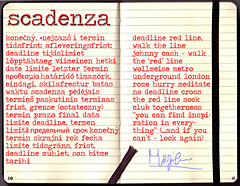 scadenza
konečný, nejzazší termin
tidsfrist; afleveringsfrist;
deadline tijdslimiet
lõpptähtaeg viimeinen hetki
date limite letzter Termin
προθεσμία határidő tímamörk,
eindagi, skilafrestur batas
waktu scadenza pēdējais
termiņš paskutinis terminas
frist, grense (ostateczny)
termin prazo final data
limite deadline, termen
limită предельный срок konečný
termín skrajni rok fecha
límite tidsgräns, frist,
deadline mühlet, son bitme
tarihi
deadline red line,
walk the line
johnny cash - walk
the 'red line
wollmeise metro
underground london
rome hurry meditate
no deadline crocs
the red line sock
club togetherness
"you can find inspi-
ration in every-
thing" (and if you
can't - look again)
10
11